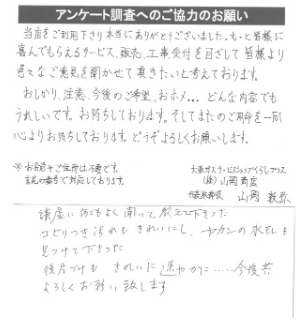 アンケート調査へのご協力のお願い
当店をご利用下さり本当にありがとうございました。もっと皆様に
喜んでもらえるサービス、販売、工事受付を目ざして皆様より
色々なご意見を聞かせて頂きたいと考えております。
おしかり、注意、今後のご希望、おホメ…どんな内容でも
うれしいです。お待ちしております。そしてまたのご用命を一同
心よりお待ちしております。どうぞよろしくお願いします。
※お名前やご住所は不要です。
大阪ガスサービスショップ くらしプラス
(株)山岡商店
代表取締役 山岡
何でもよく聞いて教えて下さった
コビリつき汚れもきれいにし、ヤカンの水もれも
見つけて下さった
後片づけも きれいに 速やかに……今後共
よろしくお願い致します